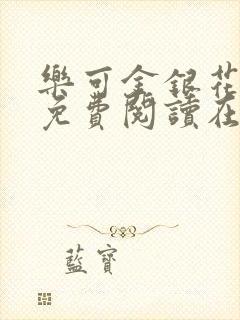 樂可金銀花
免費閱讀在
藍寶